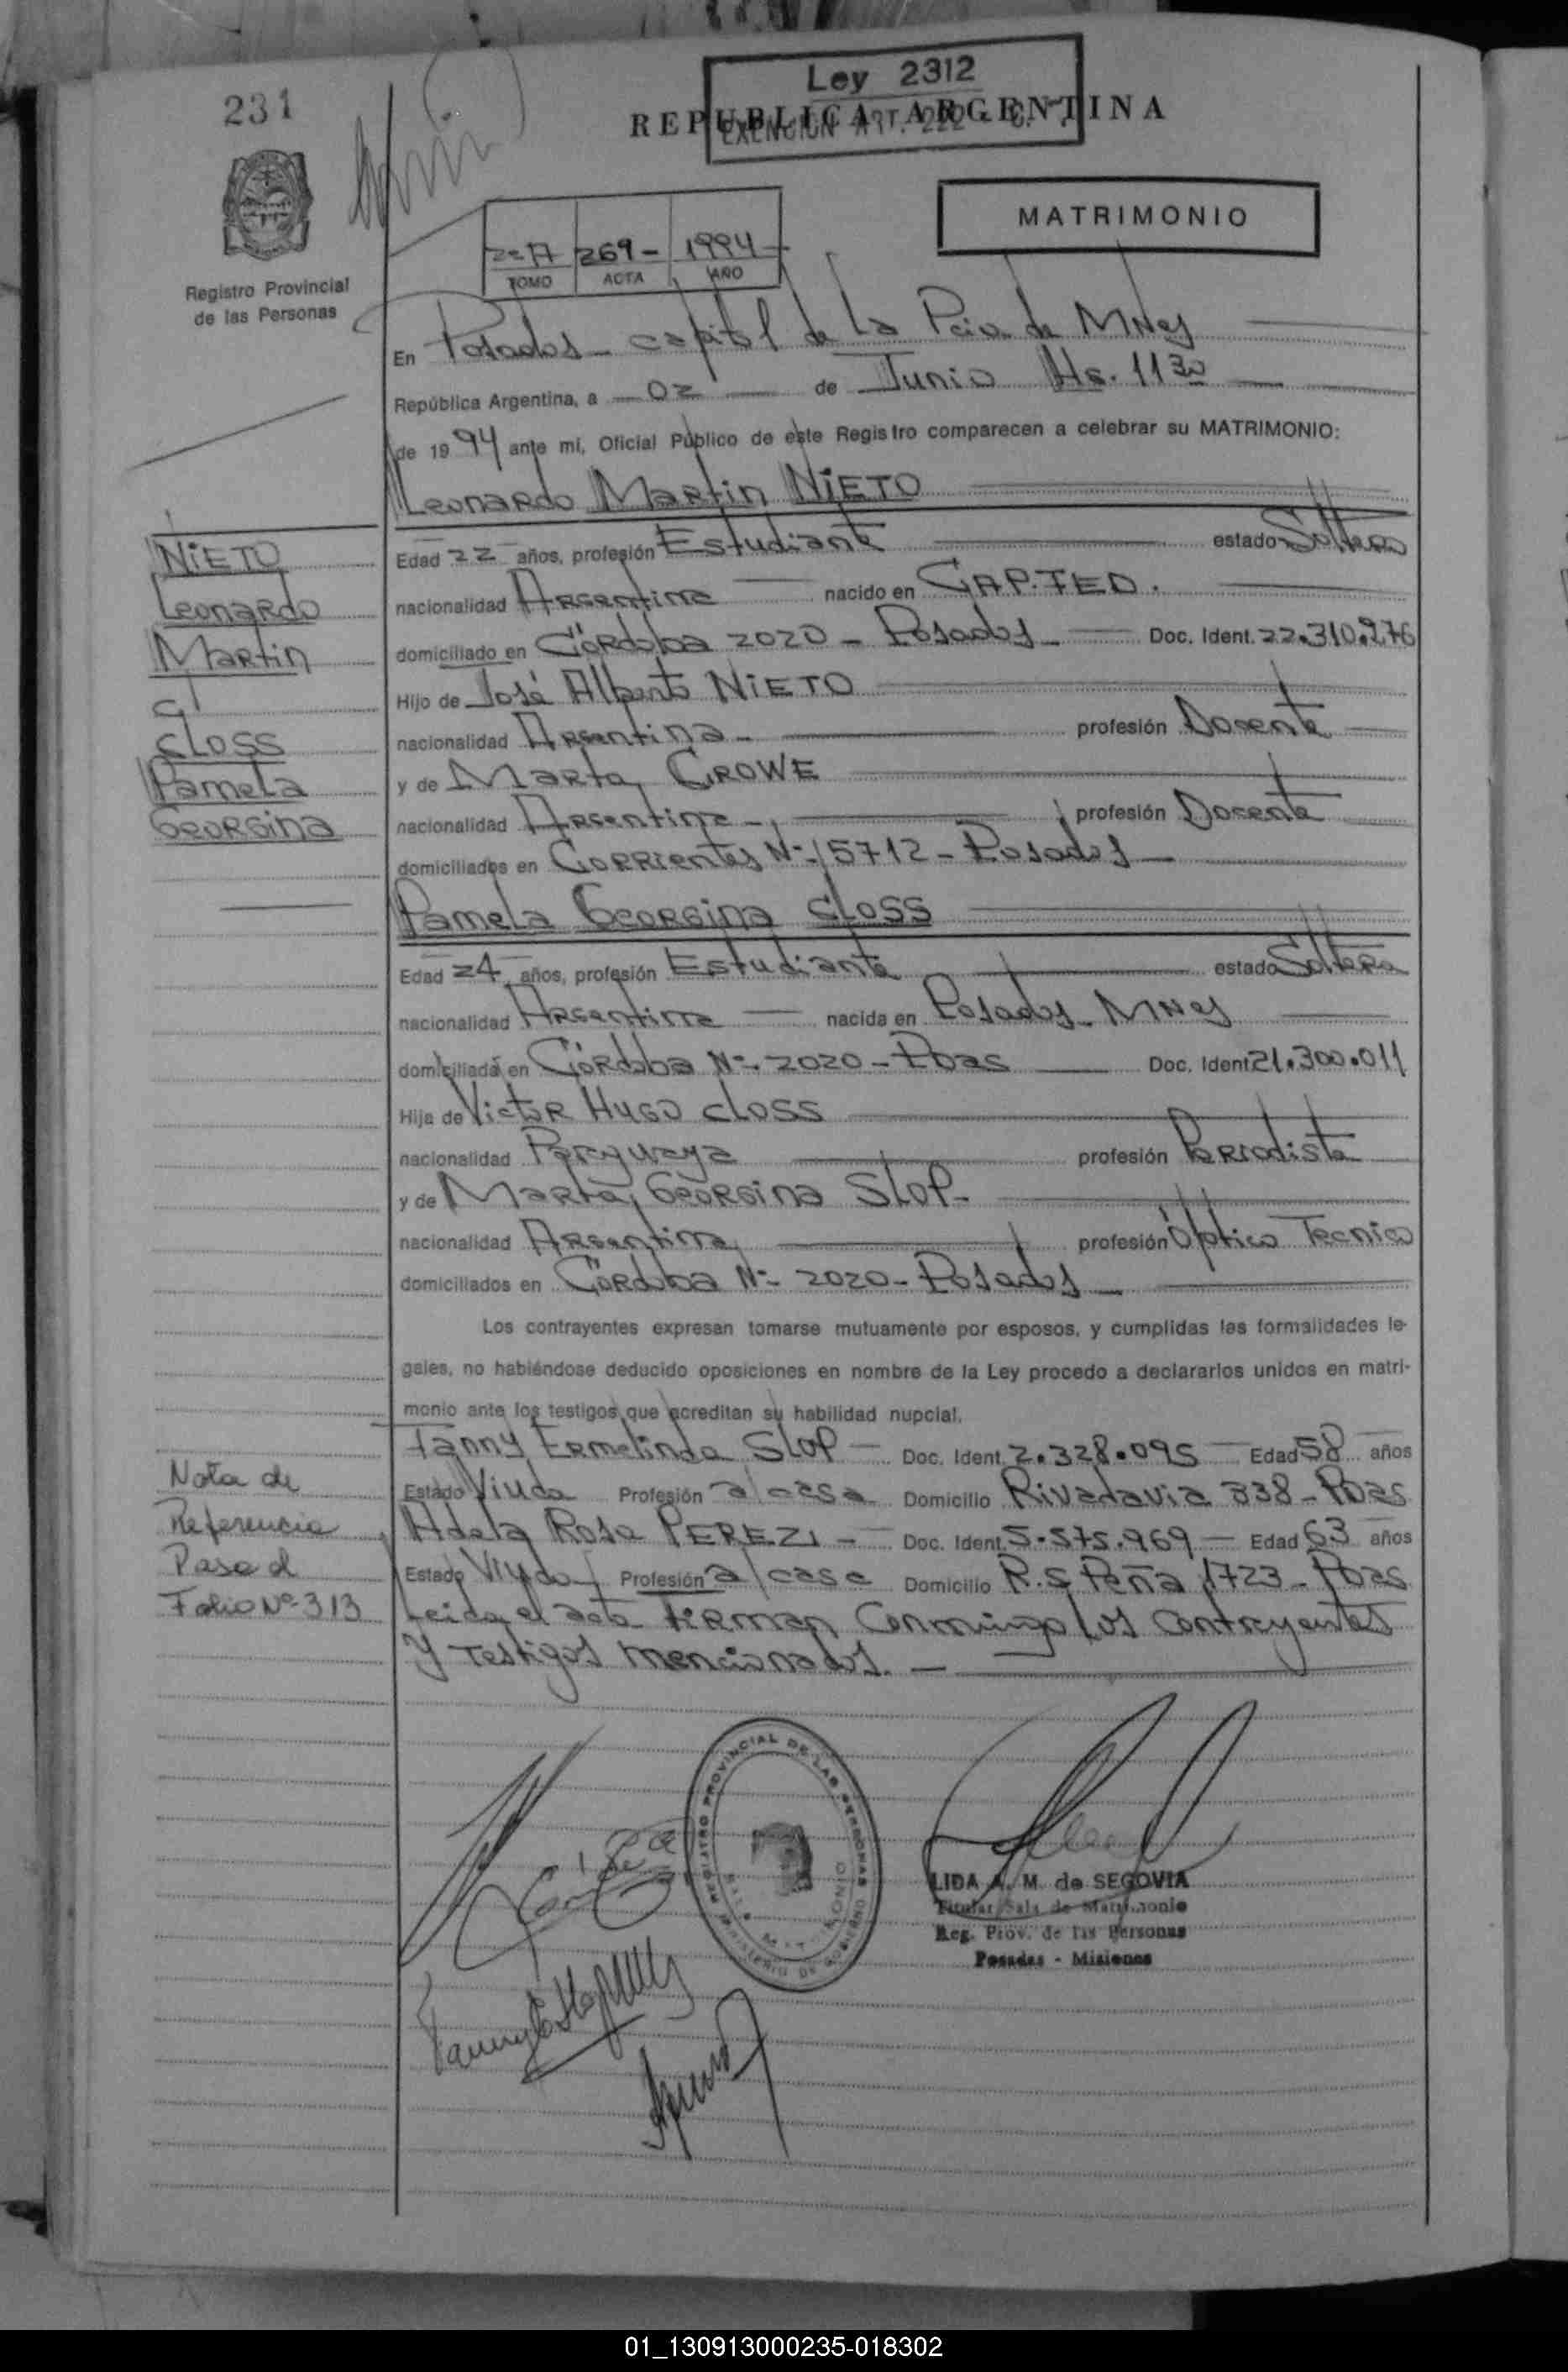 231
Ley 2312
REPUBLICA ARGENTINA
EXENCION ART. 222
MATRIMONIO
2=A 269- 1994
TOMO ACTA AÑO
Registro Provincial
de las Personas
En Posadas - capital de La Pcia. de MNes
República Argentina, a 02 de Junio Hs. 11 30
de 1994 ante mí, Oficial Público de este Registro comparecen a celebrar su MATRIMONIO:
Leonardo Martin NIETO
NIETO
Leonardo
Martin
c/
CLOSS
Pamela
Georgina
Edad 22 años, profesión Estudiante estado Soltero
nacionalidad Argentina nacido en CAP. FED.
domiciliado en Córdoba 2020 - Posadas - Doc. Ident. 22.310.276
Hijo de José Alberto NIETO
nacionalidad Argentina - profesión Docente
y de Marta CROWE
nacionalidad Argentina - profesión Docente
domiciliados en Corrientes Nº 5712 - Posadas
Pamela Georgina CLOSS
Edad 24 años, profesión Estudiante estado Soltera
nacionalidad Argentina nacida en Posadas - MNes
domiciliada en Córdoba Nº 2020 - Pdas Doc. Ident 21.300.011
Hija de Victor Hugo CLOSS
nacionalidad Paraguaya profesión Periodista
y de Marta Georgina SLOP -
nacionalidad Argentina profesión Optico Tecnico
domiciliados en Córdoba Nº 2020 - Posadas
Los contrayentes expresan tomarse mutuamente por esposos, y cumplidas las formalidades le-
gales, no habiéndose deducido oposiciones en nombre de la Ley procedo a declararlos unidos en matri-
monio ante los testigos que acreditan su habilidad nupcial.
Fanny Ermelinda SLOP - Doc. Ident. 2.328.095 - Edad 58 años
Estado Viuda Profesión a/casa Domicilio Rivadavia 338 - Pdas
Adela Rosa PEREZ - Doc. Ident. 5.575.969 - Edad 63 años
Estado Viuda Profesión a/casa Domicilio R.S Peña 1723 - Pdas
Leida el acta firman Conmigo los contrayentes
y testigos mencionados. -
Nota de
Referencia
Pasa al
Folio Nº 313
REGISTRO PROVINCIAL DE LAS PERSONAS
MINISTERIO DE GOBIERNO
LIDA A. M. de SEGOVIA
Titular Sala de Matrimonio
Reg. Prov. de las Personas
Posadas - Misiones
01_130913000235-018302